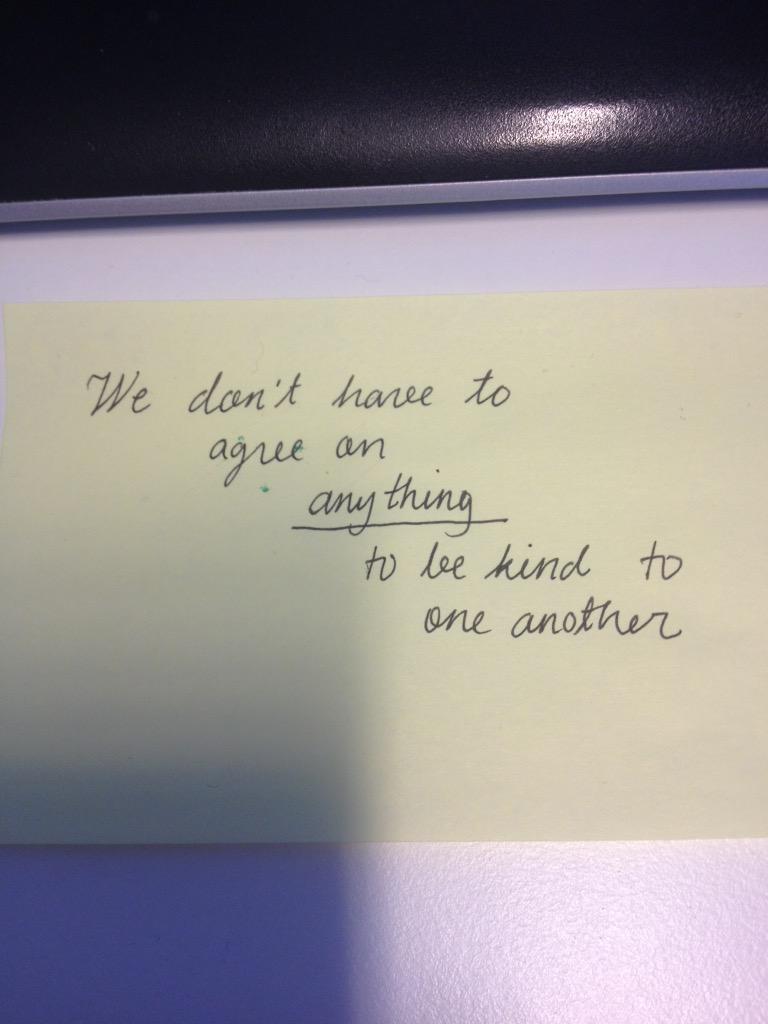 We don't have to
agree on
anything
to be kind to
one another